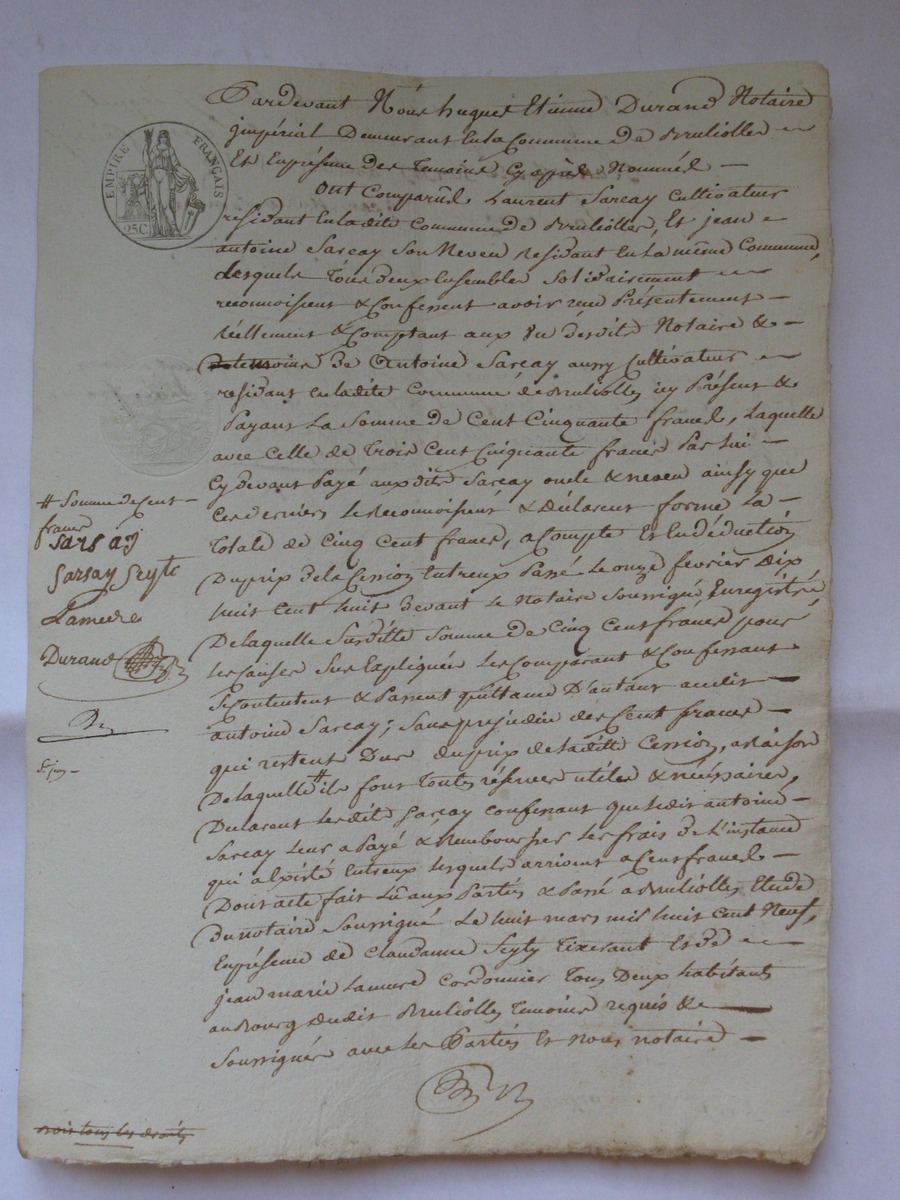 EMPIRE FRANÇAIS
25C
Pardevant Nous huguet Etienne Durand Notaire
jmpérial Demeurant En la Commune De Brulliolles
Et En présence Des Temoins Cy après Nommés
Ont Comparus Laurent Sarcay Cultivateur
residant En ladite Commune De Brulliolles, Et jean
antoine Sarcay Son Neveu residant En la même Commune,
Lesquels Tous deux Ensembles Solidairement
reconnoissent & Confessent avoir reçu Présentement
réellement & Comptant aux vu desdits Notaire &
Temoins De Antoine Sarcay aussy Cultivateur
residant En ladite Commune de Brulliolles icy Présent &
Payant La Somme De Cent Cinquante francs, Laquelle
avec Celle De Trois Cent Cinquante francs Par Lui
Cy devant Payé auxdits Sarcay oncle & neveu ainsy que
Ces derniers Le reconnoissent & Déclarent forme La
Totale De Cinq Cent francs, a Compte Et En déduction
Du prix De la Cession Entreux Passé Le onze février Dix
huit Cent huit Devant Le Notaire Soussigné Enregistré
De laquelle Susditte Somme De Cinq Cent francs pour
Les Causes Sus Expliquées Les Comparant & Confessant
Se Contentent & Passent quittance D'autant audit
antoine Sarcay; Sans préjudice des Cent francs
qui restent Dus du prix De laditte Cession, a Raison
De laquelle # ils font Toutes réserves utiles & nécessaires,
Déclarent Lesdits Sarcay Confessant que Ledit antoine
Sarcay Leur a Payé & Rembourser Les frais De L'instance
qui a Existé Entreux Lesquels arrivent a Cent francs
Dont acte fait Lu aux Parties & Passé a Brulliolles Etude
Du notaire Soussigné Le huit mars mil huit Cent Neuf,
En présence De Claudanne Seyty Tixerant Et De
jean marie Lamure Cordonnier Tous Deux habitants
au Bourg dudit Brulliolles Temoins requis &
Soussignés avec Les Parties Et Nous notaire
# Somme de Cent
francs
Sarsay
Sarsay Seyte
Lamure
Durand